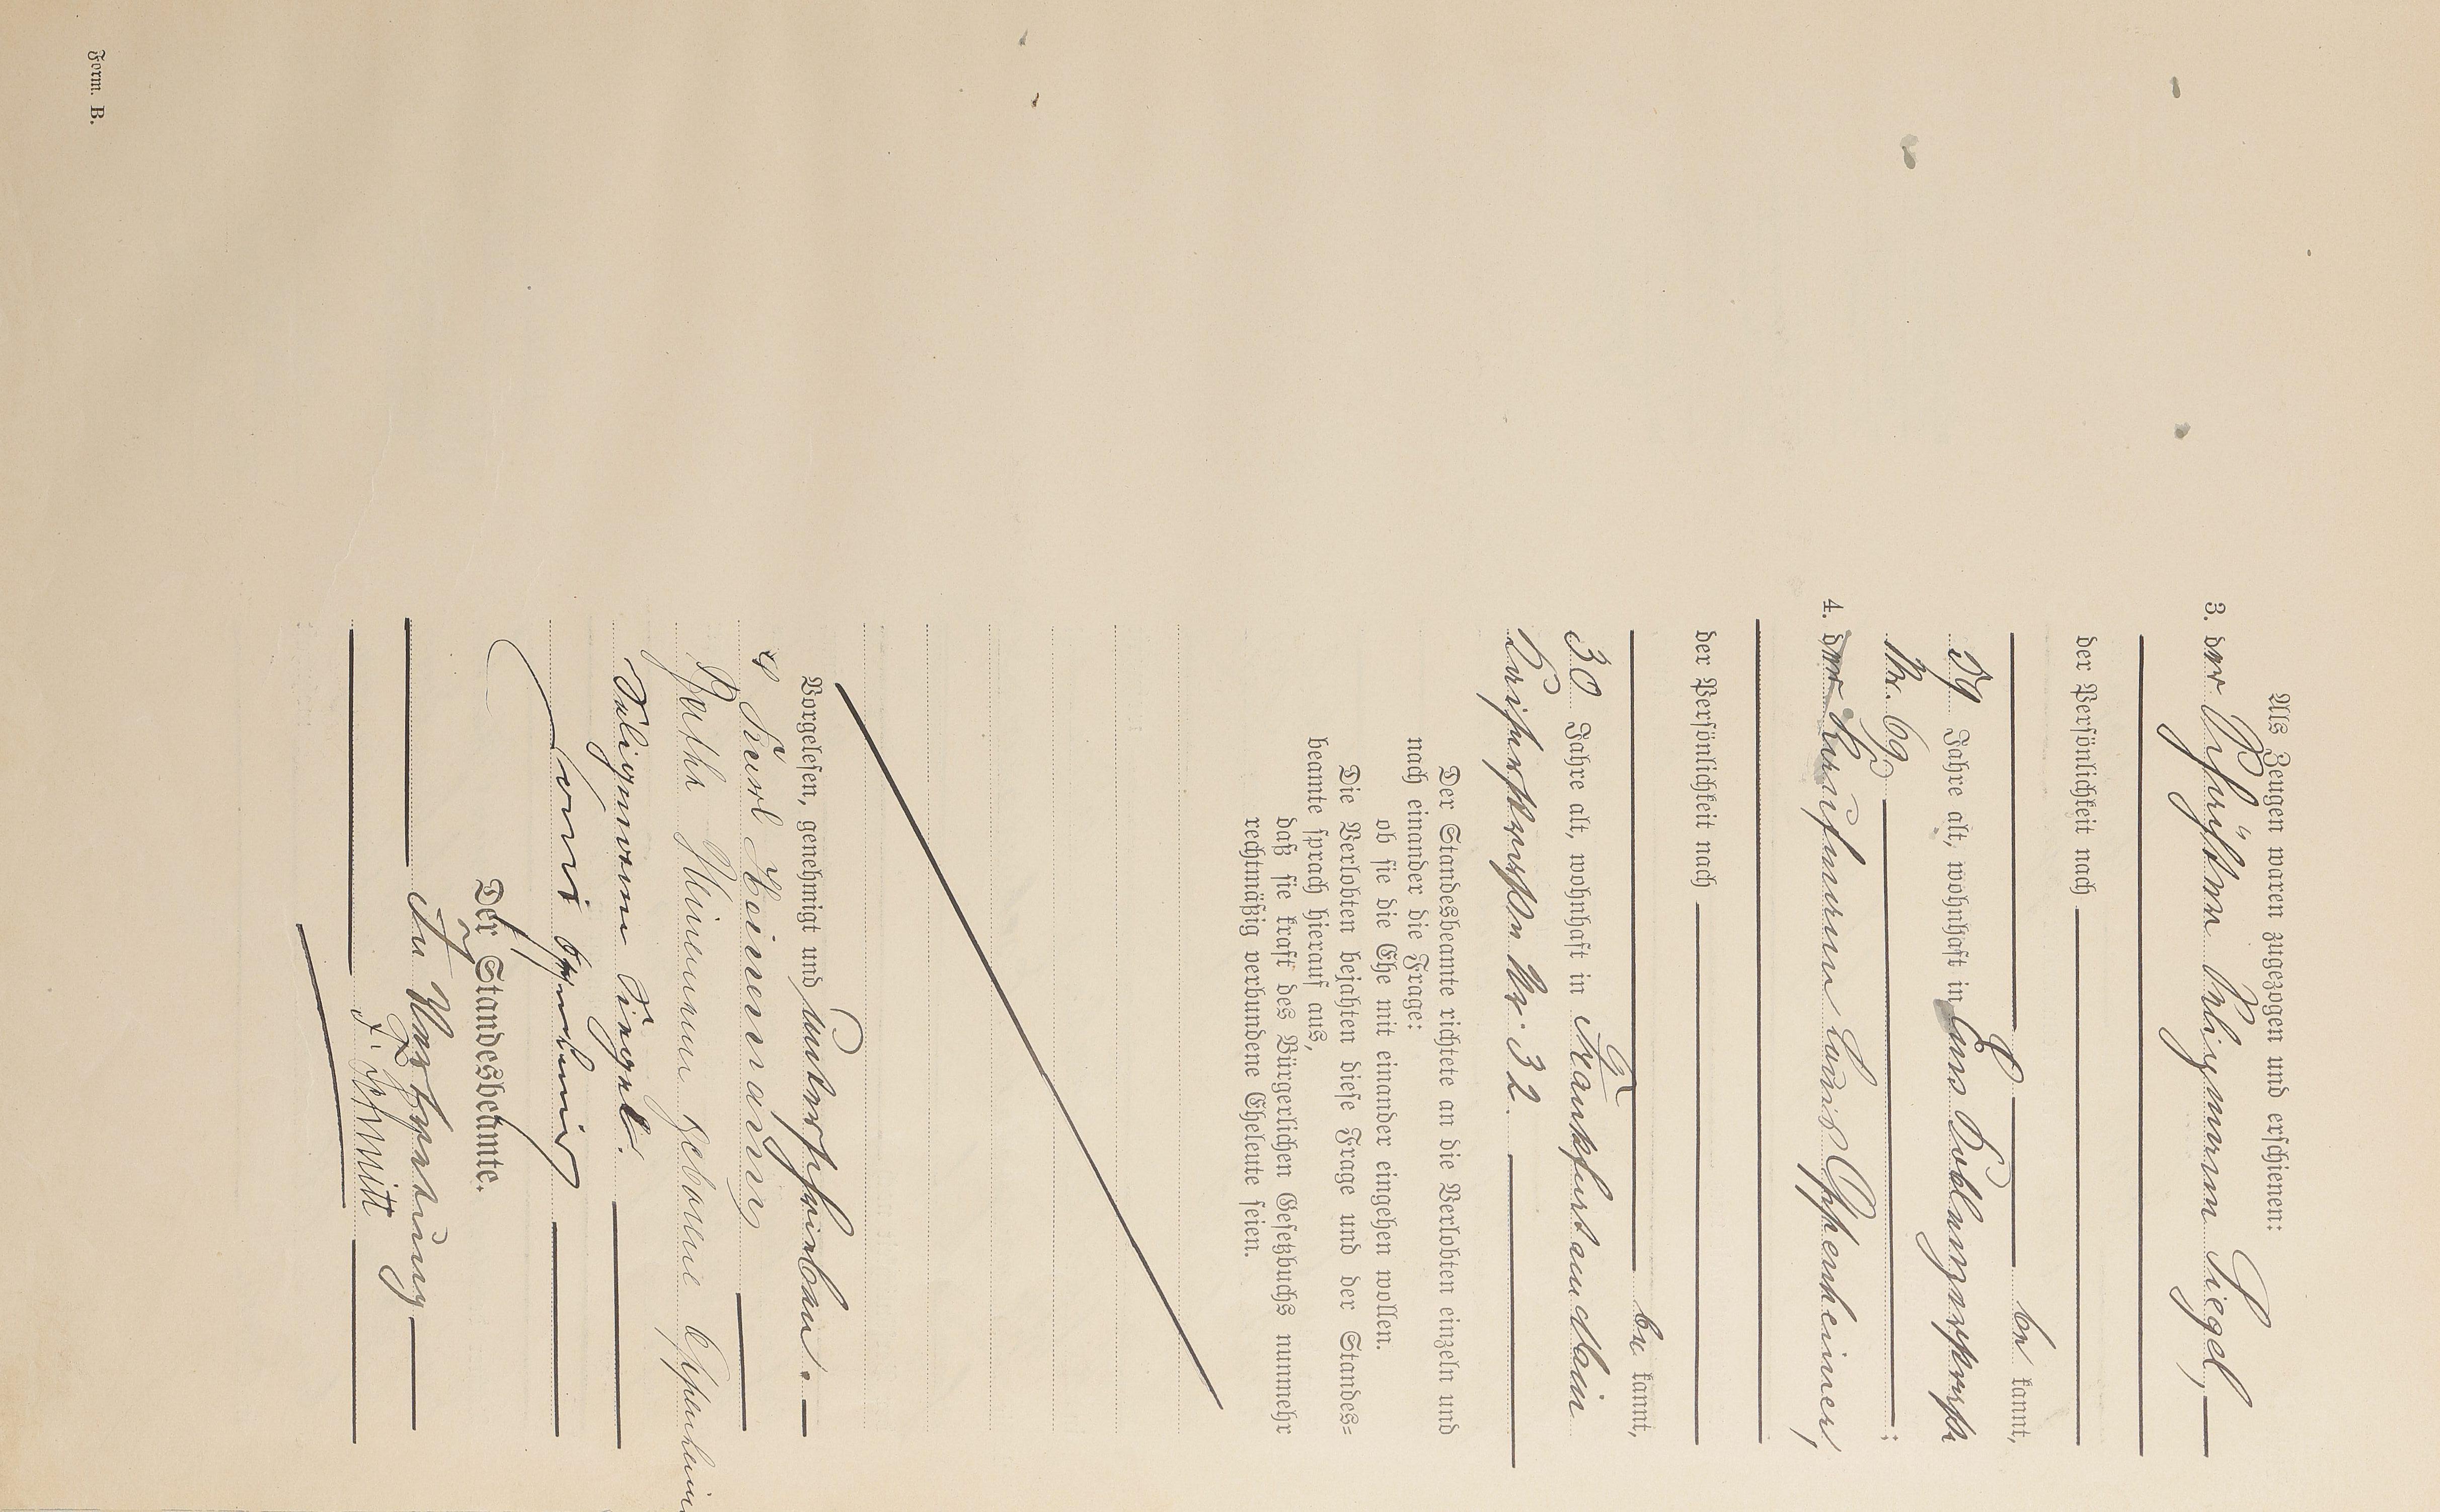 Als Zeugen waren zugezogen und erschienen:
3. der Seligmann Siegel,
der Persönlichkeit nach
be kannt,
59 Jahre alt, wohnhaft in Ems
Nr. 69
;
4. der Kaufmann Louis Oppenheimer,
der Persönlichkeit nach
be kannt,
30 Jahre alt, wohnhaft in Frankfurt am Main
Nr. 32.
Der Standesbeamte richtete an die Verlobten einzeln und
nach einander die Frage:
ob sie die Ehe mit einander eingehen wollen.
Die Verlobten bejahten diese Frage und der Standes-
beamte sprach hierauf aus,
daß sie kraft des Bürgerlichen Gesetzbuchs nunmehr
rechtmäßig verbundene Eheleute seien.
Vorgelesen, genehmigt und unterschrieben.
Karl Heinemann
Heinemann geborene Oppenheimer
Seligmann Siegel.
Louis Oppenheimer
Der Standesbeamte.
In Vertretung
F. Schmitt
Form. B.